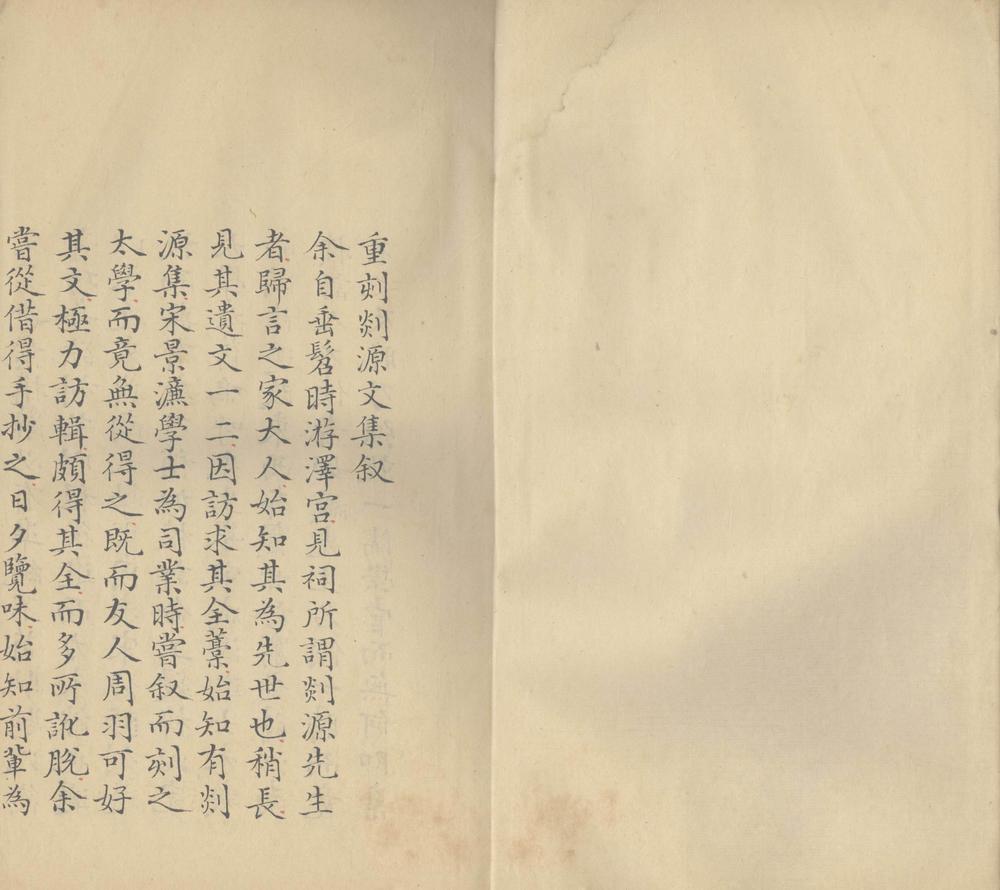 重刻剡源文集叙
余自垂髫時游澤宫見祠所謂剡源先生
者歸言之家大人始知其為先世也稍長
見其遺文一二因訪求其全藁始知有剡
源集宋景濂學士為司業時嘗叙而刻之
太學而竟無從得之既而友人周羽可好
其文極力訪輯頗得其全而多所訛脱余
嘗從借得手抄之日夕覽味始知前軰為